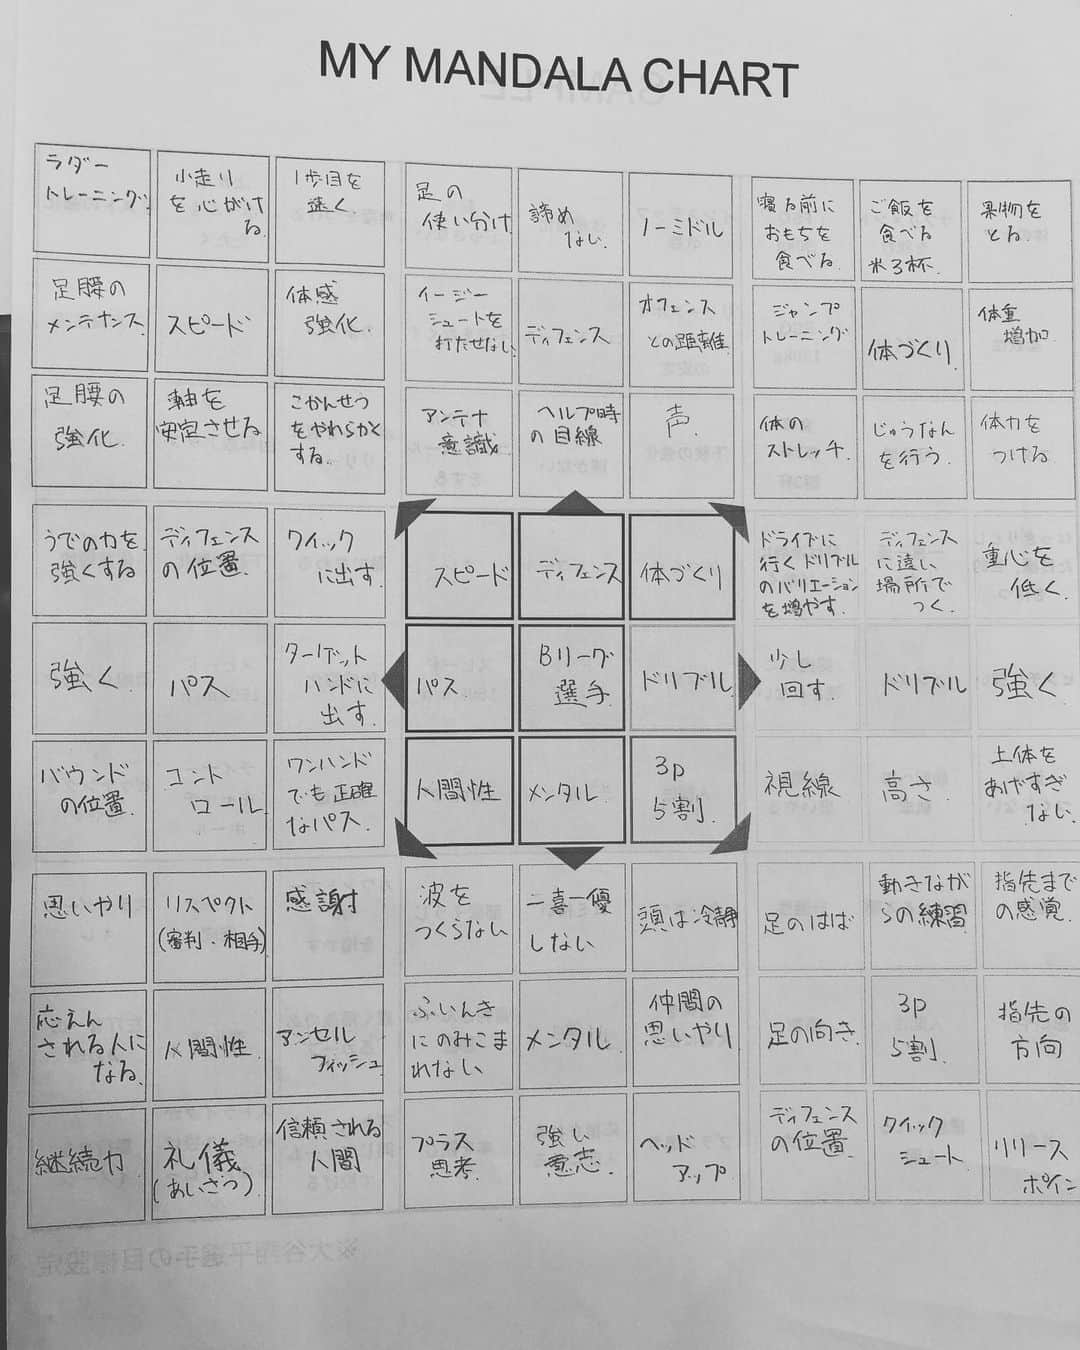 MY MANDALA CHART
ラダー
トレーニング
小走り
を心がけ
る
1歩目を
速く
足の
使い分け
諦め
ない
ノーミドル
寝る前に
おもちを
食べる
ご飯を
食べる
米3杯
果物を
とる
足腰の
メンテナンス
スピード
体感
強化
イージー
シュートを
打たせない
ディフェンス
オフェンス
との距離
ジャンプ
トレーニング
体づくり
体重
増加
足腰の
強化
軸を
安定させる
こかんせつ
をやわらかく
する。
アンテナ
意識
ヘルプ時
の目線
声
体の
ストレッチ
じゅうなん
を行う
体力を
つける
うでの力を
強くする
ディフェンス
の位置
クイック
に出す
スピード
ディフェンス
体づくり
ドライブに
行くドリブル
のバリエーション
を増やす
ディフェンス
に遠い
場所で
つく
重心を
低く
強く
パス
ターゲット
ハンドに
出す
パス
Bリーグ
選手
ドリブル
少し
回す
ドリブル
強く
バウンド
の位置
コント
ロール
ワンハンド
でも正確
なパス
人間性
メンタル
3P
5割
視線
高さ
上体を
あげすぎ
ない
思いやり
リスペクト
(審判・相手)
感謝
波を
つくらない
一喜一優
しない
頭は冷静
足のはば
動きなが
らの練習
指先まで
の感覚
応えん
される人に
なる
人間性
アンセル
フィッシュ
ふいんき
にのみこま
れない
メンタル
仲間の
思いやり
足の向き
3P
5割
指先の
方向
継続力
礼儀
(あいさつ)
信頼される
人間
プラス
思考
強い
意志
ヘッド
アップ
ディフェンス
の位置
クイック
シュート
リリース
ポイン
※大谷翔平選手の目標設定